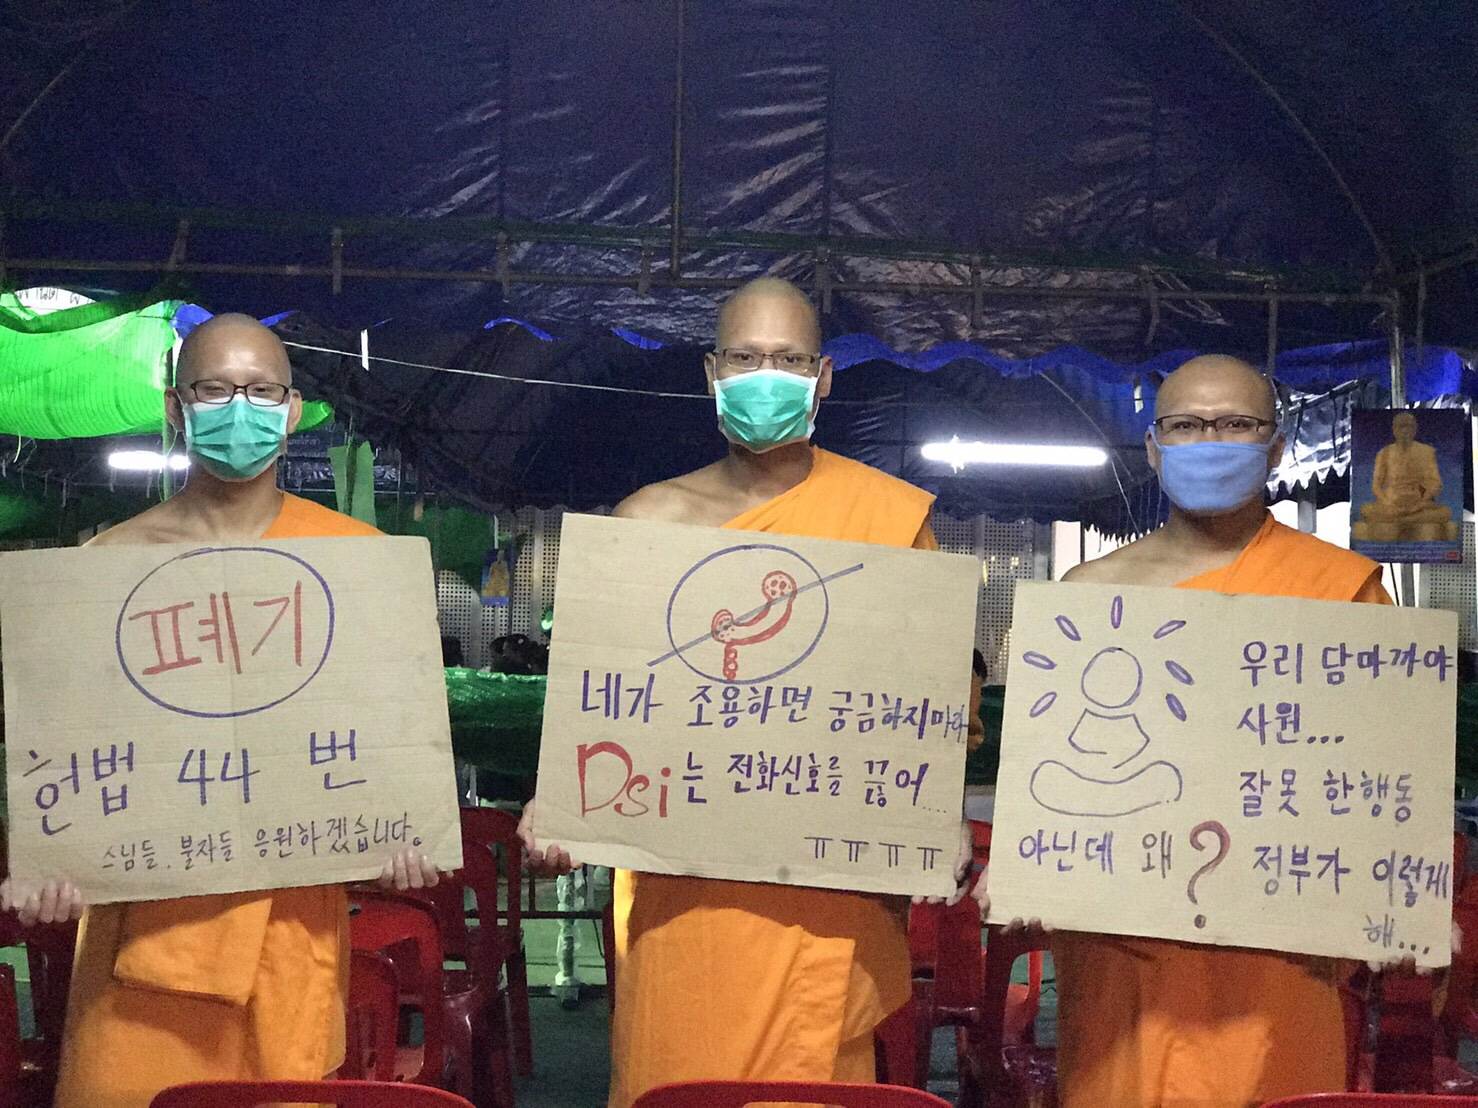 폐기
헌법 44 번
스님들, 불자들 응원하겠습니다.
네가 조용하면 궁금하지마라
Dsi는 전화신호를 끊어....
ㅠㅠㅠㅠ
우리 담마까야
사원...
잘못 한행동
아닌데 왜? 정부가 이렇게
해...